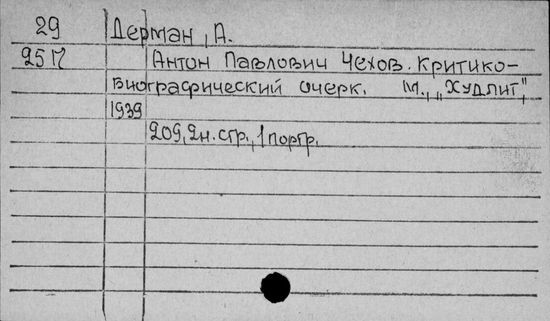 29 Дерман, А.
25П Антон Павлович Чехов. Критико-
Биографический очерк. М., „Худлит",
1939
209, 2н. стр., 1 портр.